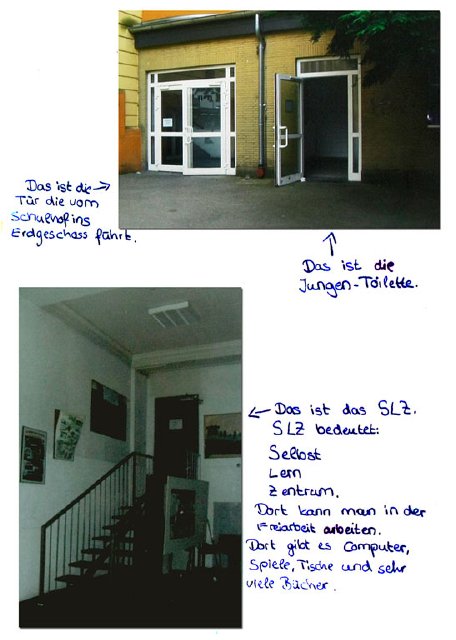 Das ist die
Tür die vom
Schulhof ins
Erdgeschoss führt.
Das ist die
Jungen-Toilette.
Das ist das SLZ.
SLZ bedeutet:
Selbst
Lern
Zentrum.
Dort kann man in der
Freiarbeit arbeiten.
Dort gibt es Computer,
Spiele, Tische und sehr
viele Bücher.